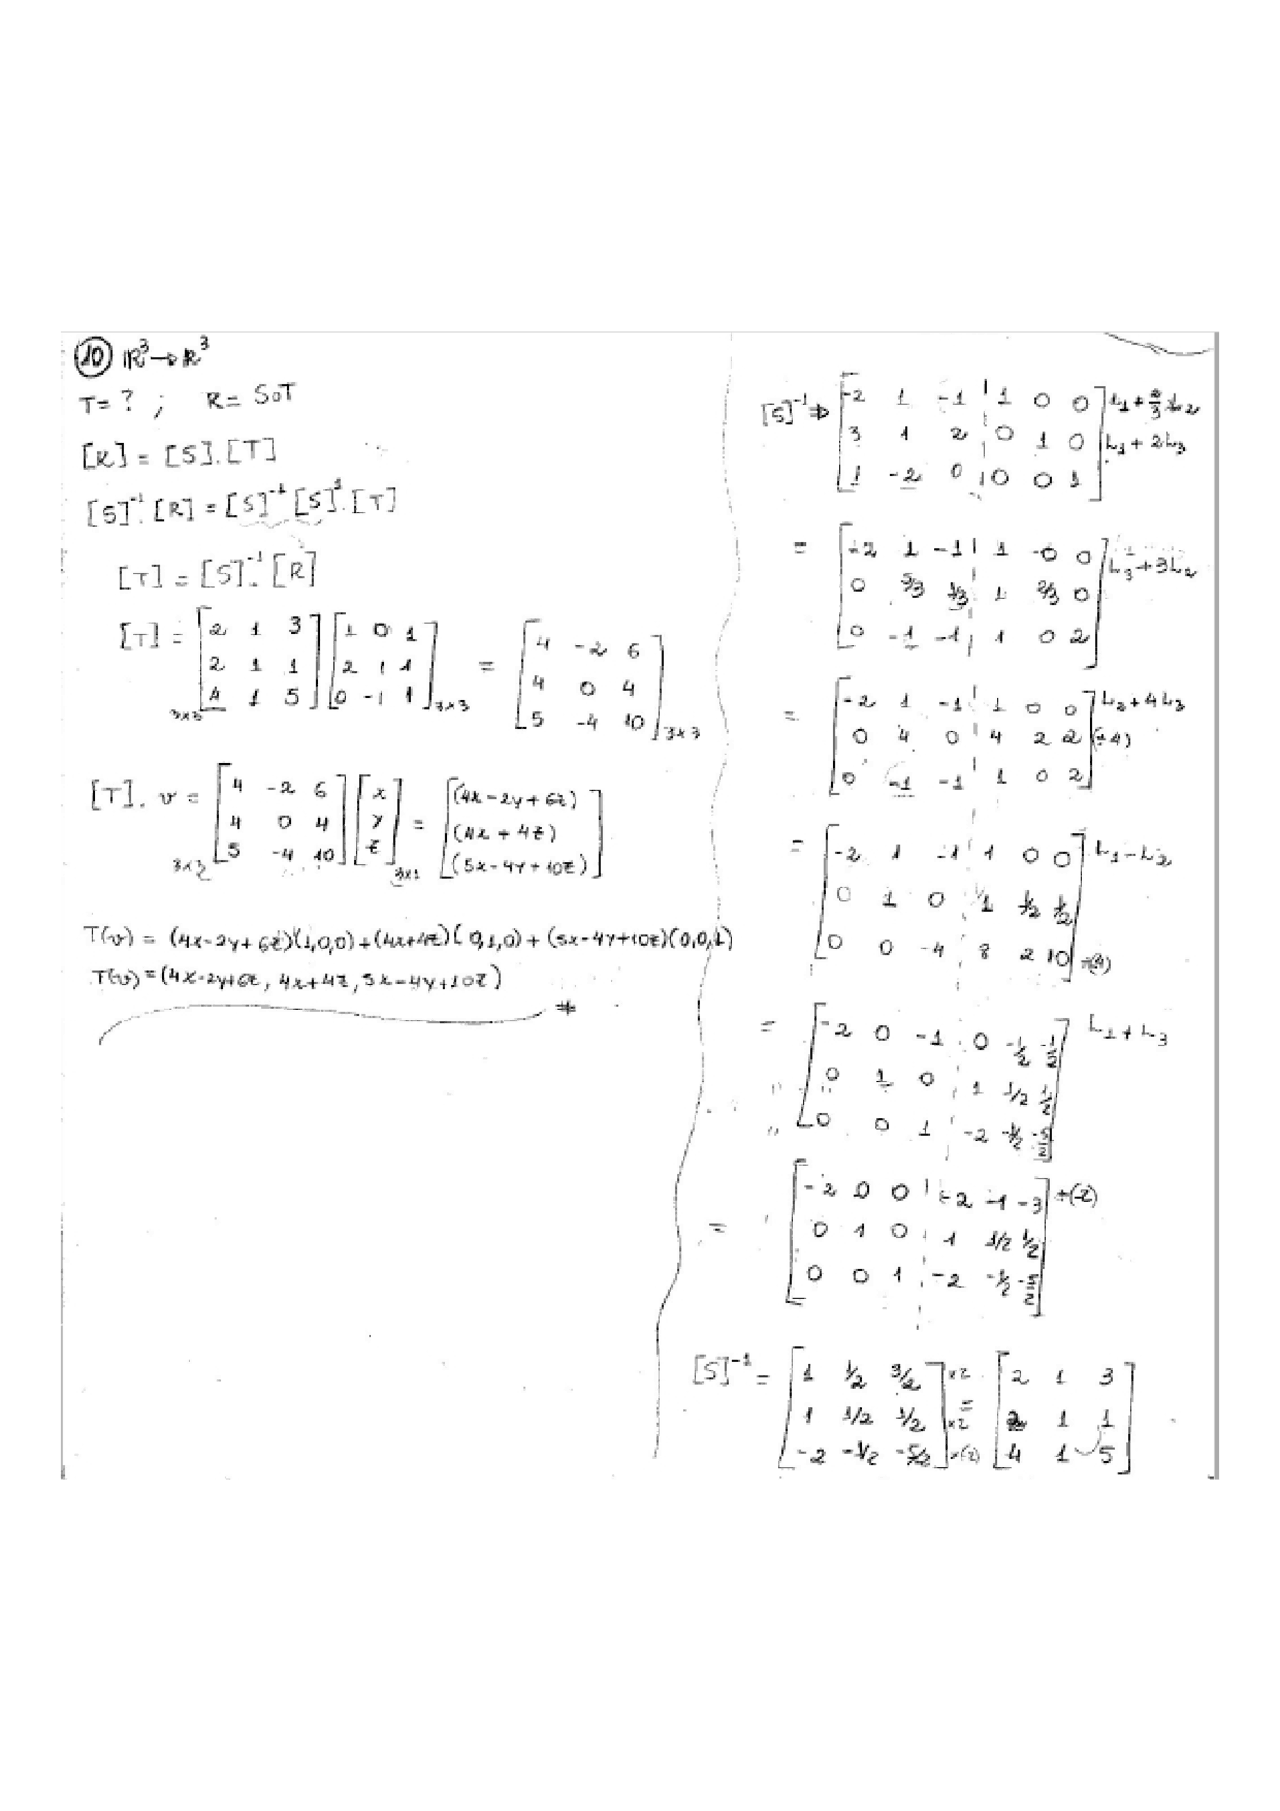 10 ℝ³→ℝ³
T= ? ; R= S∘T
[R] = [S].[T]
[S]⁻¹.[R] = [S]⁻¹[S]¹.[T]
[T] = [S]⁻¹.[R]
[T] = [2 1 3; 2 1 1; 4 1 5]3x3 [1 0 1; 2 1 1; 0 -1 1]3x3 = [4 -2 6; 4 0 4; 5 -4 10]3x3
[T]. v = [4 -2 6; 4 0 4; 5 -4 10]3x3 [x; y; z]3x1 = [(4x-2y+6z); (4x+4z); (5x-4y+10z)]
T(v) = (4x-2y+6z)(1,0,0)+(4x+4z)(0,1,0)+(5x-4y+10z)(0,0,1)
T(v) = (4x-2y+6z, 4x+4z, 5x-4y+10z)
#
[S]⁻¹⇒ [-2 1 -1 | 1 0 0; 3 1 2 | 0 1 0; 1 -2 0 | 0 0 1] L1+2/3 L2 L1+2L3
= [-2 1 -1 | 1 0 0; 0 5/3 1/3 | 1 2/3 0; 0 -1 -1 | 1 0 2] L3+3L2
= [-2 1 -1 | 1 0 0; 0 4 0 | 4 2 2; 0 -1 -1 | 1 0 2] L2+4L3 (÷4)
= [-2 1 -1 | 1 0 0; 0 1 0 | 1 1/2 1/2; 0 0 -4 | 8 2 10] L1-L2 ÷(4)
= [-2 0 -1 | 0 -1/2 -1/2; 0 1 0 | 1 1/2 1/2; 0 0 1 | -2 -1/2 -5/2] L1+L3
= [-2 0 0 | -2 -1 -3; 0 1 0 | 1 1/2 1/2; 0 0 1 | -2 -1/2 -5/2] ÷(-2)
[S]⁻¹ = [1 1/2 3/2; 1 1/2 1/2; -2 -1/2 -5/2] x2 x2 x(2) = [2 1 3; 2 1 1; 4 1 5]